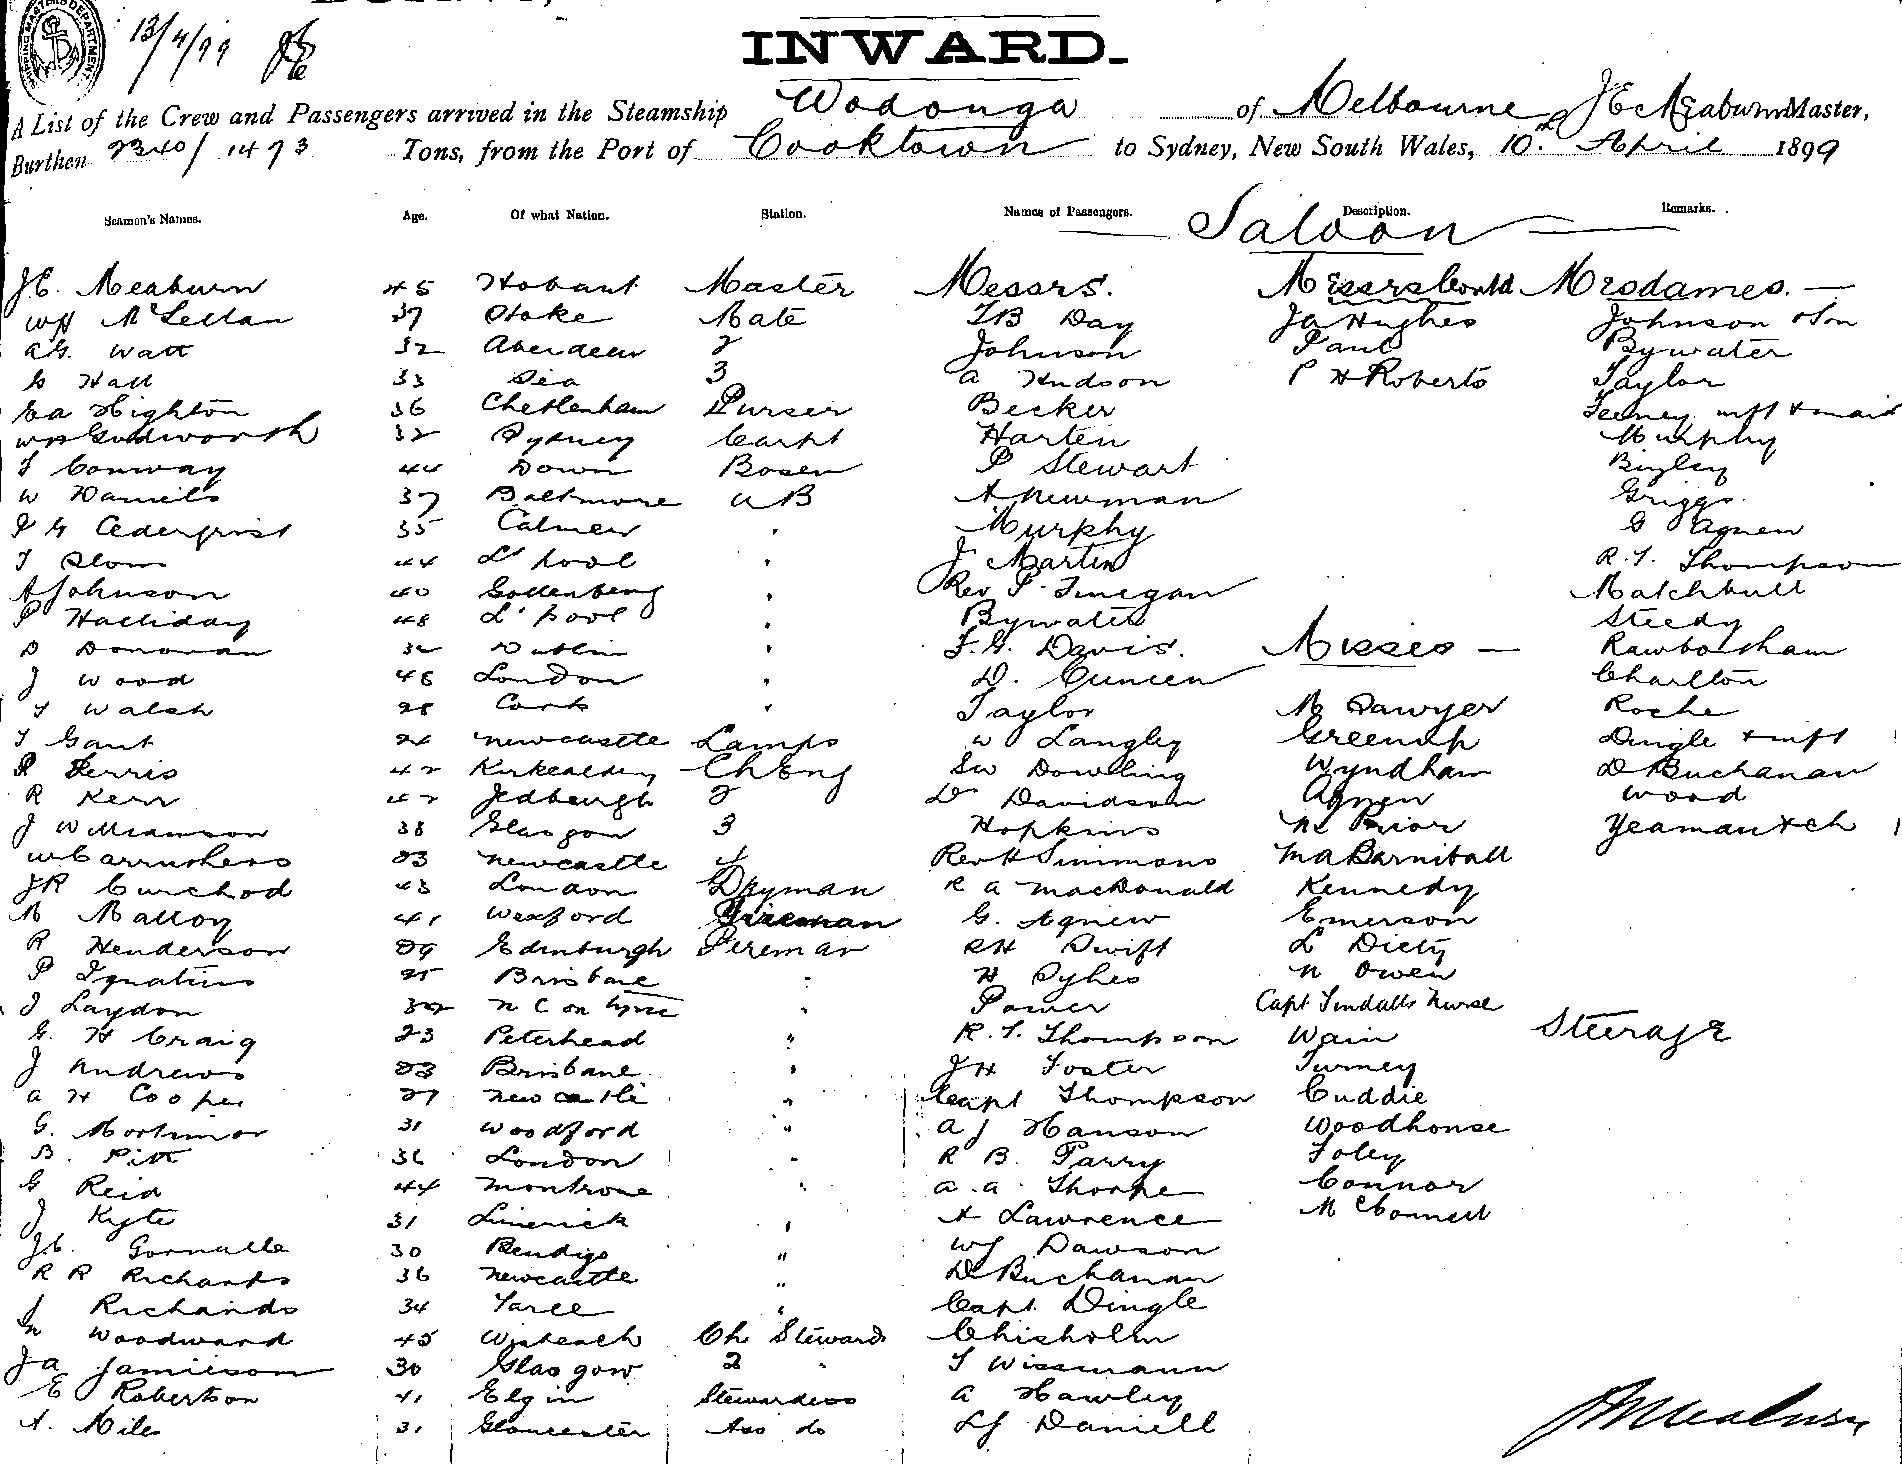 13/4/99
INWARD.
A List of the Crew and Passengers arrived in the Steamship Wodonga of Melbourne, J C Meaburn Master,
Burthen 2340/1473 Tons, from the Port of Cooktown to Sydney, New South Wales, 10th April 1899
Seamen's Names. Age. Of what Nation. Station. Names of Passengers. Description. Remarks.
Saloon
J C. Meaburn 45 Hobart Master Messrs. Messrs Contd Mesdames.
WH McLellan 37 Stoke Mate TB Day JA Hughes Johnson & Son
AG. Watt 32 Aberdeen 2 Johnson Paul Bywater
G Hall 33 Sea 3 A Hudson P H Roberts Taylor
EA Highton 36 Cheltenham Purser Becker Feeney inft & maid
32 Sydney Carpt Harten Murphy
T Conway 44 Down Bosen P Stewart Bigley
W Daniels 37 Baltimore AB A Newman Griggs.
35 Calmer " Murphy G Agnew
T Slom 44 L'pool " J Martin R. T. Thompson
A Johnson 40 Gottenberg " Rev P. Finegan Matchbutt
P Halliday 48 L'pool " Bywater Steedy
D Donovan 32 Dublin " F. G. Davis. Misses Rawbotsham
J Wood 48 London " D. Cuneen Charlton
T Walsh 28 Cork " Taylor M Sawyer Roche
T Gaut 24 Newcastle Lamps W Langley Greenup Dingle & inft
P Ferris 42 Kirkcaldy Ch Eng SW Dowling Wyndham D Buchanan
R Kerr 42 Jedburgh 2 Dr Davidson Agnew Wood
J Williamson 38 Glasgow 3 Hopkins Mc Prior Yeaman & ch
W Carruthers 23 Newcastle 4 Rev H Simmons MA Barniball
JR Curchod 43 London Dkyman R A MacDonald Kennedy
M Malloy 41 Wexford Fireman G. Agnew Emerson
R Henderson 29 Edinburgh Fireman RH Swift L Diety
P Ignatius 25 Brisbane " H Sykes N Owen
J Laydon 32 N C on Tyne " Power Capt Tindalls Nurse
G. H Craig 23 Peterhead " R. T. Thompson Wain Steerage
J Andrews 23 Brisbane " JH Foster Turney
A H Cooper 27 Newcastle " Capt Thompson Cuddie
G. Mortimor 31 Woodford " A J Hanson Woodhouse
B. Pitt 36 London " R B. Parry Foley
G Reid 44 Montrose " A. A. Thorpe Connor
J Kyte 31 Limerick " A Lawrence McConnell
J C. Gornalle 30 Bendigo " WJ Dawson
R R Richards 36 Newcastle " D Buchanan
J Richards 34 Taree " Capt. Dingle
W Woodward 45 Wisbeach Ch Steward Chisholm
JA Jamieson 30 Glasgow 2 " T Wissmann
E Robertson 41 Elgin Stewardess A Hawley
A. Miles 31 Gloucester Ass do LJ Daniell
JC Meaburn